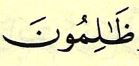 ظَٰلِمُونَ